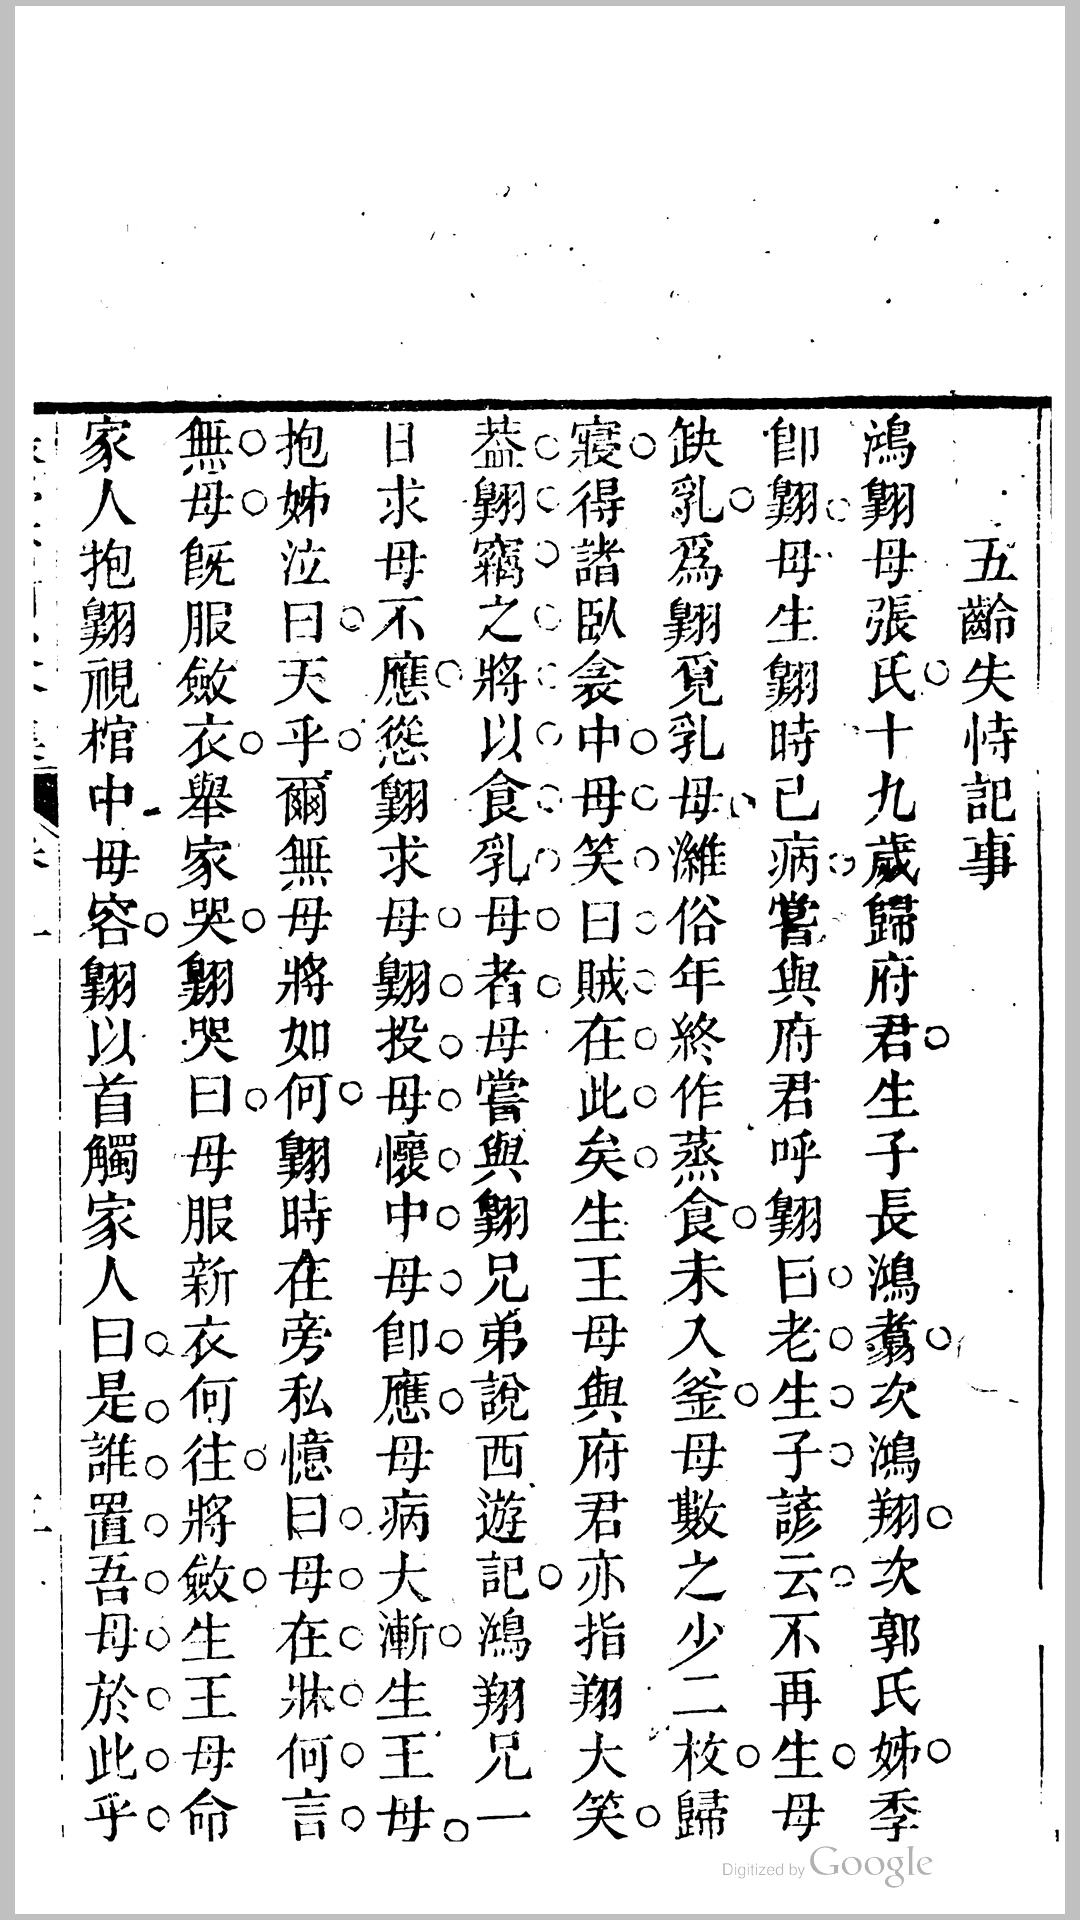 五齡失恃記事
鴻翺母張氏十九歲歸府君生子長鴻翥次鴻翔次郭氏姊季
卽翺母生翺時已病嘗與府君呼翺曰老生子諺云不再生母
缺乳爲翺覓乳母濰俗年終作蒸食未入釜母數之少二枚歸
寢得諸臥衾中母笑曰賊在此矣生王母與府君亦指翔大笑
葢翺竊之將以食乳母者母嘗與翺兄弟說西遊記鴻翔兄一
日求母不應慫翺求母翺投母懷中母卽應母病大漸生王母
抱姊泣曰天乎爾無母將如何翺時在旁私憶曰母在牀何言
無母旣服斂衣舉家哭翺哭曰母服新衣何往將斂生王母命
家人抱翺視棺中母容翺以首觸家人曰是誰置吾母於此乎
Digitized by Google